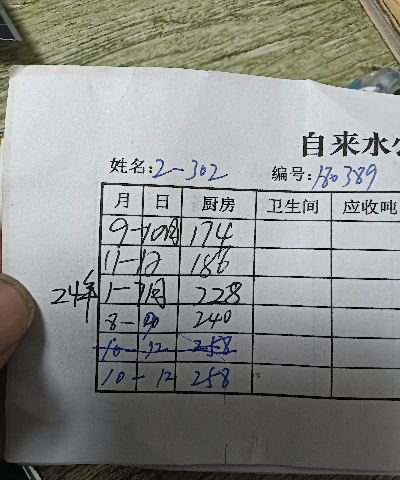 自来水
姓名:2-302 编号:180389
月 日 厨房 卫生间 应收吨
9-10月 174
11-12 186
24年 1-7月 228
8-90 240
10-12 258
10-12 258